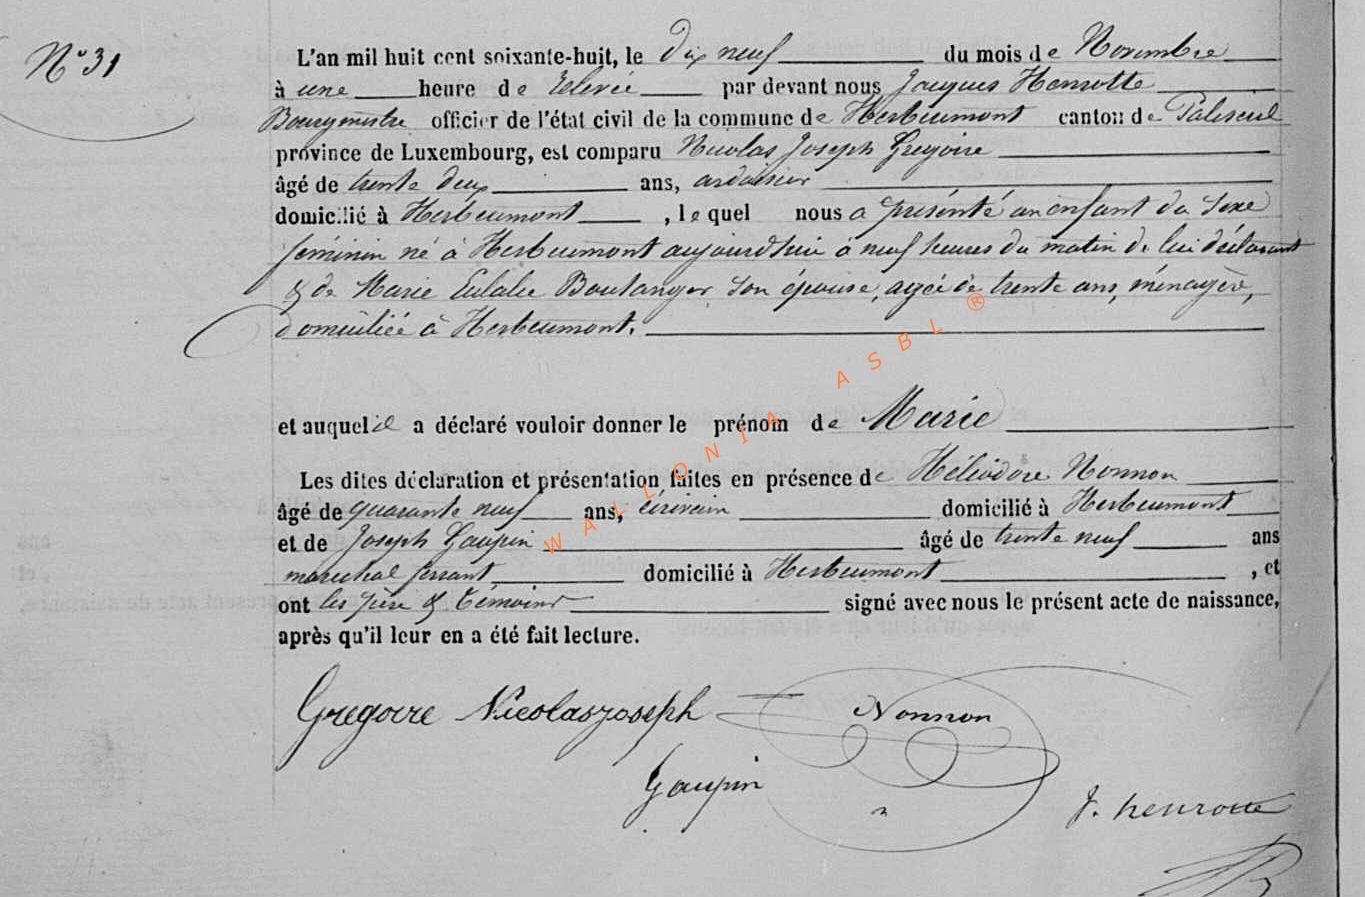 N° 31
L'an mil huit cent soixante-huit, le dix neuf du mois de Novembre
à une heure de relevée par devant nous Jacques Henrotte
Bourgmestre officier de l'état civil de la commune de Herbeumont canton de Paliseul
province de Luxembourg, est comparu Nicolas Joseph Gregoire
âgé de trente deux ans, ardoisier
domicilié à Herbeumont, lequel nous a présenté un enfant du sexe
féminin né à Herbeumont aujourd'hui à neuf heures du matin de lui déclarant
& de Marie Eulalie Boulanger son épouse, agée de trente ans, ménagère,
domiciliée à Herbeumont.
et auquel il a déclaré vouloir donner le prénom de Marie
Les dites déclaration et présentation faites en présence de Héliodore Nonnon
âgé de quarante neuf ans, écrivain domicilié à Herbeumont
et de Joseph Gaupin âgé de trente neuf ans
marechal ferrant, domicilié à Herbeumont, et
ont les père & temoins signé avec nous le présent acte de naissance,
après qu'il leur en a été fait lecture.
Gregoire Nicolas joseph Nonnon
Gaupin
J. henrotte
WALLONIA ASBL ®